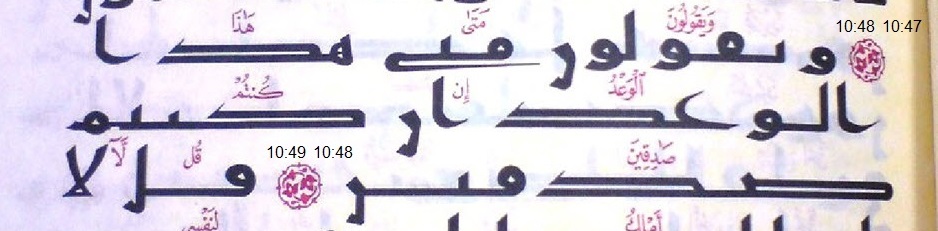 وَيَقُولُونَ مَتَىٰ هَٰذَا 10:48 10:47
ويقولون متى هذا
ٱلْوَعْدُ إِن كُنتُمْ
الوعد ان كنتم
صَٰدِقِينَ 10:49 10:48 قُل لَّآ
صدقين قل لا
أَمْلِكُ لِنَفْسِى